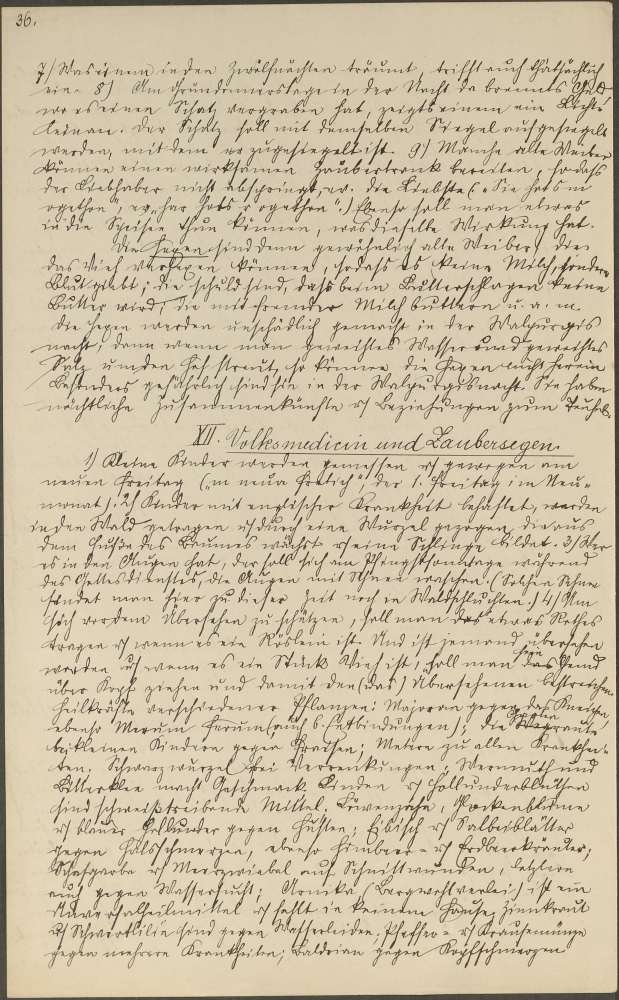 36.
7) Was einem in den Zwölfnächten träumt, trifft auch thatsächlich
ein. 8) Am Gründonnerstage in der Nacht da brennts Geld
wo es einen Schatz vergraben hat, zeigts einem ein Lichte
keinan. Der Schatz soll mit demselben Siegel aufgesiegelt
werden, mit dem er zugesiegelt ist. 9) Manche alte Weiber
können einen wirksamen Zaubertrank bereiten, sodass
der Liebhaber nicht abspringt, er. die Liebste („Sie hots'm
ogethon", er „har hots'r ogethon".) Ebenso soll man etwas
in die Speisen thun können, was dieselbe Wirkung hat.
Die Hexen sind denn gewöhnlich alte Weiber, die
das Vieh verhexen können, sodass es keine Milch, sondern
Blut giebt; die schuld sind, dass beim Butterschlagen keine
Butter wird, die mit fremder Milch buttern u. a. m.
Die Hexen werden unschädlich gemacht in der Walpurgis
nacht, denn wenn man geweihtes Wasser und geweihtes
Salz um den Hof streut, so können die Hexen nicht herein.
Besonders gefährlich sind sie in der Walpurgisnacht. Sie haben
nächtliche Zusammenkünfte u. Beziehungen zum Teufel.
XII. Volksmedicin und Zaubersegen.
1) Kleine Kinder werden gemessen u. gewogen am
neuen Freitag („m neua Freitich", der 1. Freitag im Neu-
monat). 2) Kinder mit englischer Krankheit behaftet, werden
in den Wald getragen u. durch eine Wurzel gezogen, die aus
dem Fuße des Baumes wächst u. eine Schlinge bildet. 3) Wer
es in den Augen hat, der soll sich am Pfingstsonntage während
des Gottesdienstes, die Augen mit Schnee waschen. (Solchen Schnee
findet man hier zu dieser Zeit noch in Waldschluchten.) 4) Um
sich vor dem Übersehen zu schützen, soll man etwas Rothes
tragen u. wenn es ein Röslein ist. Und ist jemand übersehen
worden u. wenn es ein Stück Vieh ist, soll man sein Hemd
über Kopf ziehen und damit den (das) Übersehenen bestreichen.
Heilkräfte verschiedener Pflanzen: Majoran gegen das Kneipen,
ebenso Merum (auch b. Entbindungen); die
bei kleinen Kindern gegen Fraisen; zu allen Krankhei-
ten. Schwarzwurzel bei Verrenkungen; Wermuth und
Bitterklee macht Geschmack. Linden u. Hollunderblüthen
sind schweißtreibende Mittel. Löwenzahn, Glockenblume
u. blauer Hollunder gegen Husten; Eibisch u. Salbeiblätter
gegen Halsschmerzen, ebenso Himbeer- u. Erdbeerkräuter;
Schafgarbe u. Meerzwiebel auf Schnittwunden, letztere
auch gegen Wassersucht; Arnika (Bergwohlverlei) ist ein
Universalheilmittel u. fehlt in keinem Hause, Zinnkraut
u. Schwertlilie sind gegen Wasserleiden, Pfeffer- u. Krausemünze
gegen mehrere Krankheiten, Baldrian gegen Kopfschmerzen